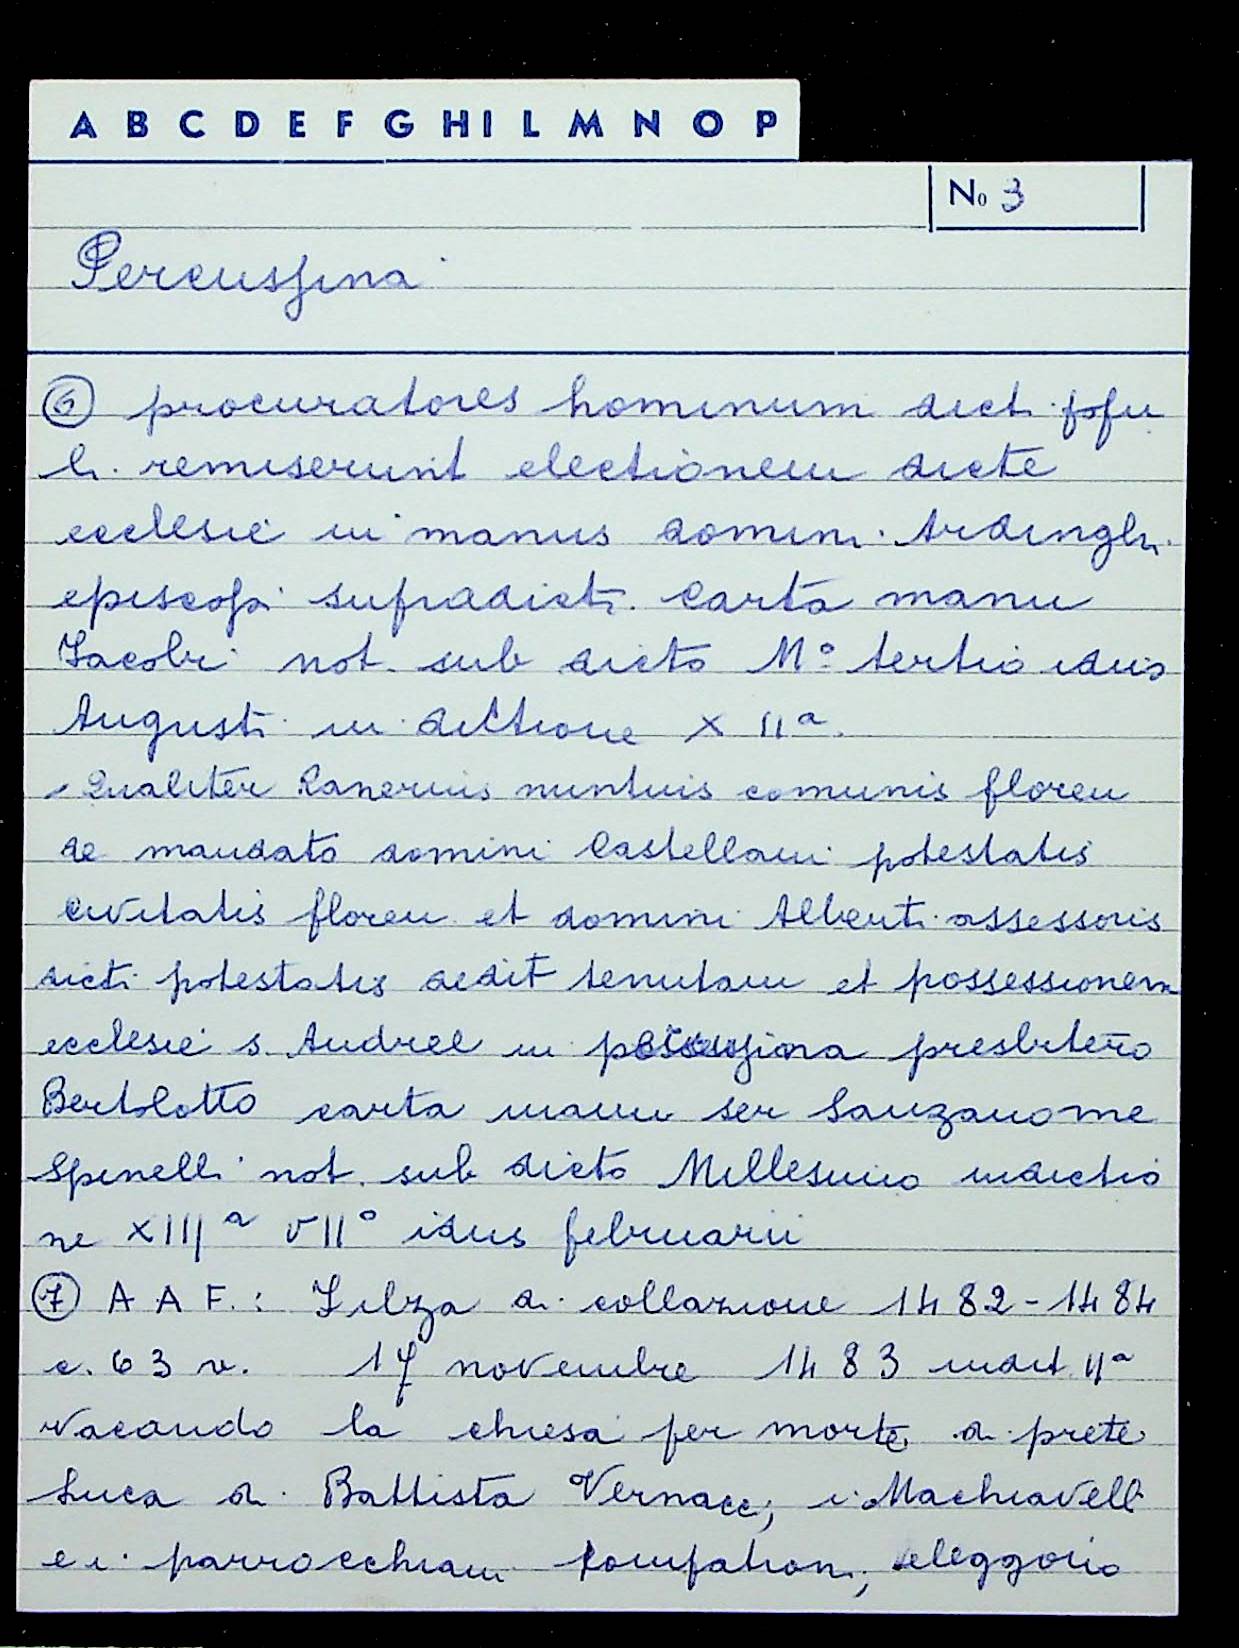 A B C D E F G H I L M N O P
No 3
Percussina
6 procuratores hominum dicti popu
li remiserunt electionem dicte
ecclesie in manus domini Ardinghi
episcopi supradicti carta manu
Jacobi not. sub dicto Mº tertio idus
Augusti in dictione XIIª.
- Qualiter Ranerius nuntius comunis floren
de mandato domini Castellani potestatis
civitatis floren et domini Alberti assessoris
dicti potestatis dedit tenutam et possessionem
ecclesie s. Andree in percussina presbitero
Bertolotto carta manu ser Sanzanome
Spinelli not. sub dicto Millesimo indictio
ne XIIIª VIIº idus februarii
7 A A F. : Filza di collazione 1482-1484
c. 63 v. 17 novembre 1483 indit. IIª
Vacando la chiesa per morte di prete
Luca di Battista Vernacci, i Machiavelli
e i parrocchiani compatroni, eleggono